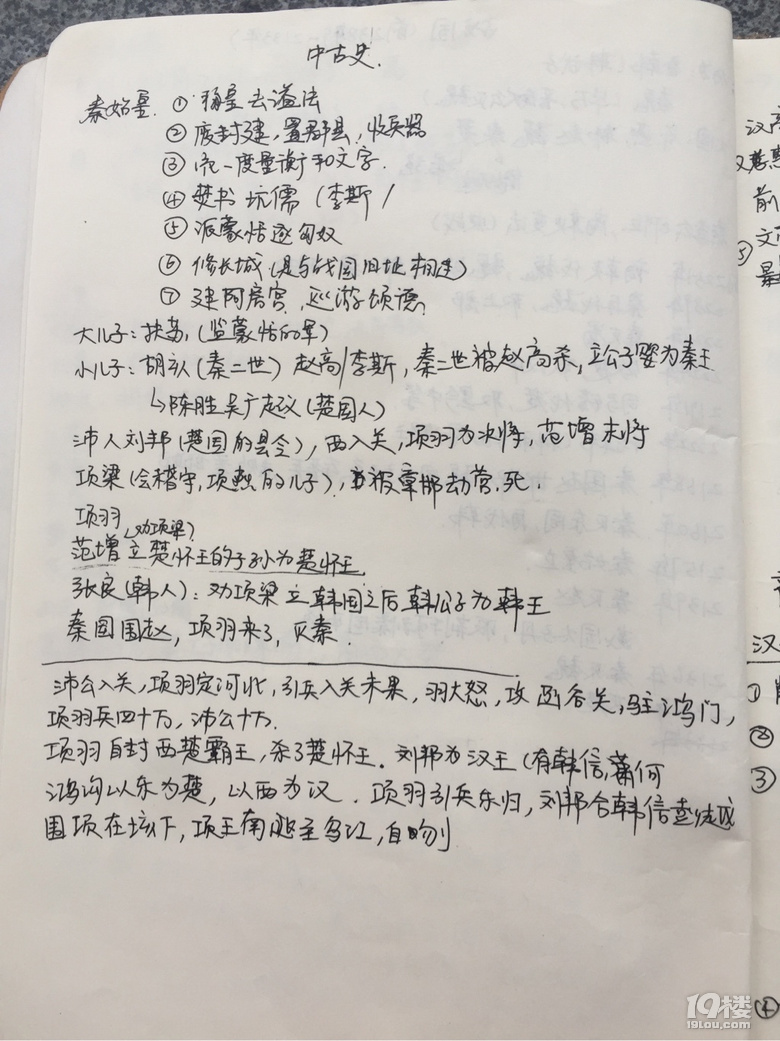 中古史.
秦始皇. ① 称皇去谥法
② 废封建, 置郡县, 收兵器
③ 统一度量衡和文字.
④ 焚书坑儒 (李斯)
⑤ 派蒙恬逐匈奴
⑥ 修长城 (是与战国旧址相连)
⑦ 建阿房宫, 巡游颂德.
大儿子: 扶苏, (监蒙恬的军)
小儿子: 胡亥 (秦二世) 赵高/李斯, 秦二世被赵高杀, 立公子婴为秦王
↳陈胜吴广起义 (楚国人)
沛人刘邦 (楚国的县令), 西入关, 项羽为次将, 范增末将
项梁 (会稽守, 项燕的儿子), 被章邯劫营, 死.
项羽
(劝项梁)
范增立楚怀王的子孙为楚怀王
张良 (韩人): 劝项梁立韩国之后韩公子为韩王
秦国围赵, 项羽来了, 灭秦.
沛公入关, 项羽定河北, 引兵入关未果, 羽大怒, 攻函谷关, 驻鸿门,
项羽兵四十万, 沛公十万.
项羽自封西楚霸王, 杀了楚怀王. 刘邦为汉王 (有韩信, 萧何
鸿沟以东为楚, 以西为汉. 项羽引兵东归, 刘邦合韩信彭越
围项在垓下, 项王南逃至乌江, 自吻刂
汉
前
⑤ 文
最
汉
①
②
③
④
19楼
19lou.com